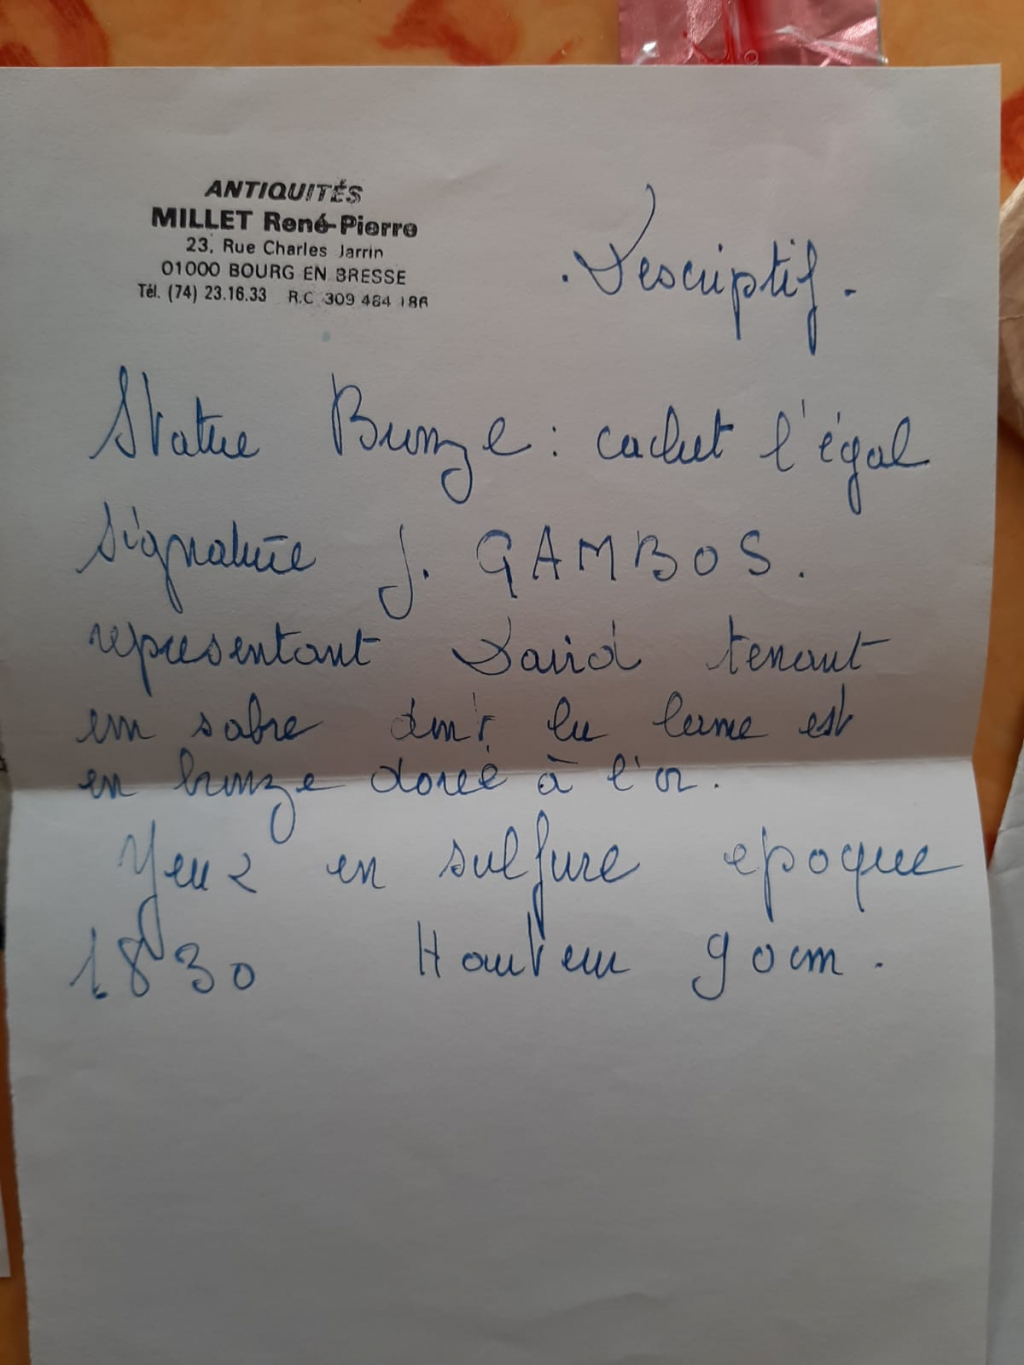 ANTIQUITÉS
MILLET René-Pierre
23, Rue Charles Jarrin
01000 BOURG EN BRESSE
Tél. (74) 23.16.33 R.C 309 484 186
. Descriptif .
Statue Bronze : cachet l'égal
signature J. GAMBOS .
representant David tenant
un sabre dont la lame est
en bronze dorée à l'or .
Yeux en sulfure epoque
1830 Hauteur 90cm .